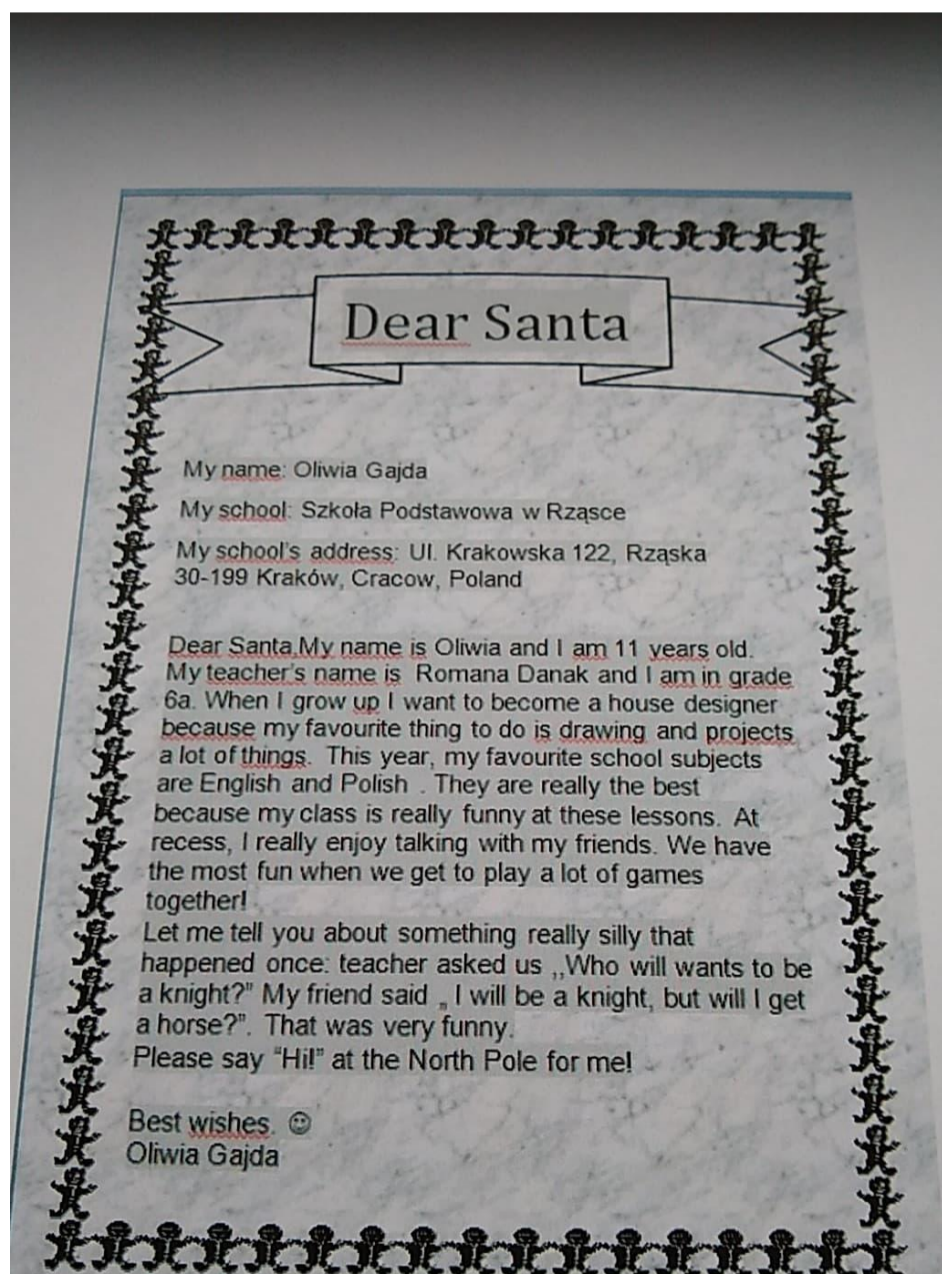 Dear Santa
My name: Oliwia Gajda
My school: Szkoła Podstawowa w Rząsce
My school's address: Ul. Krakowska 122, Rząska
30-199 Kraków, Cracow, Poland
Dear Santa,My name is Oliwia and I am 11 years old.
My teacher's name is Romana Danak and I am in grade
6a. When I grow up I want to become a house designer
because my favourite thing to do is drawing and projects
a lot of things. This year, my favourite school subjects
are English and Polish . They are really the best
because my class is really funny at these lessons. At
recess, I really enjoy talking with my friends. We have
the most fun when we get to play a lot of games
together!
Let me tell you about something really silly that
happened once: teacher asked us ,,Who will wants to be
a knight?" My friend said „ I will be a knight, but will I get
a horse?". That was very funny.
Please say “Hi!” at the North Pole for me!
Best wishes. ☺
Oliwia Gajda